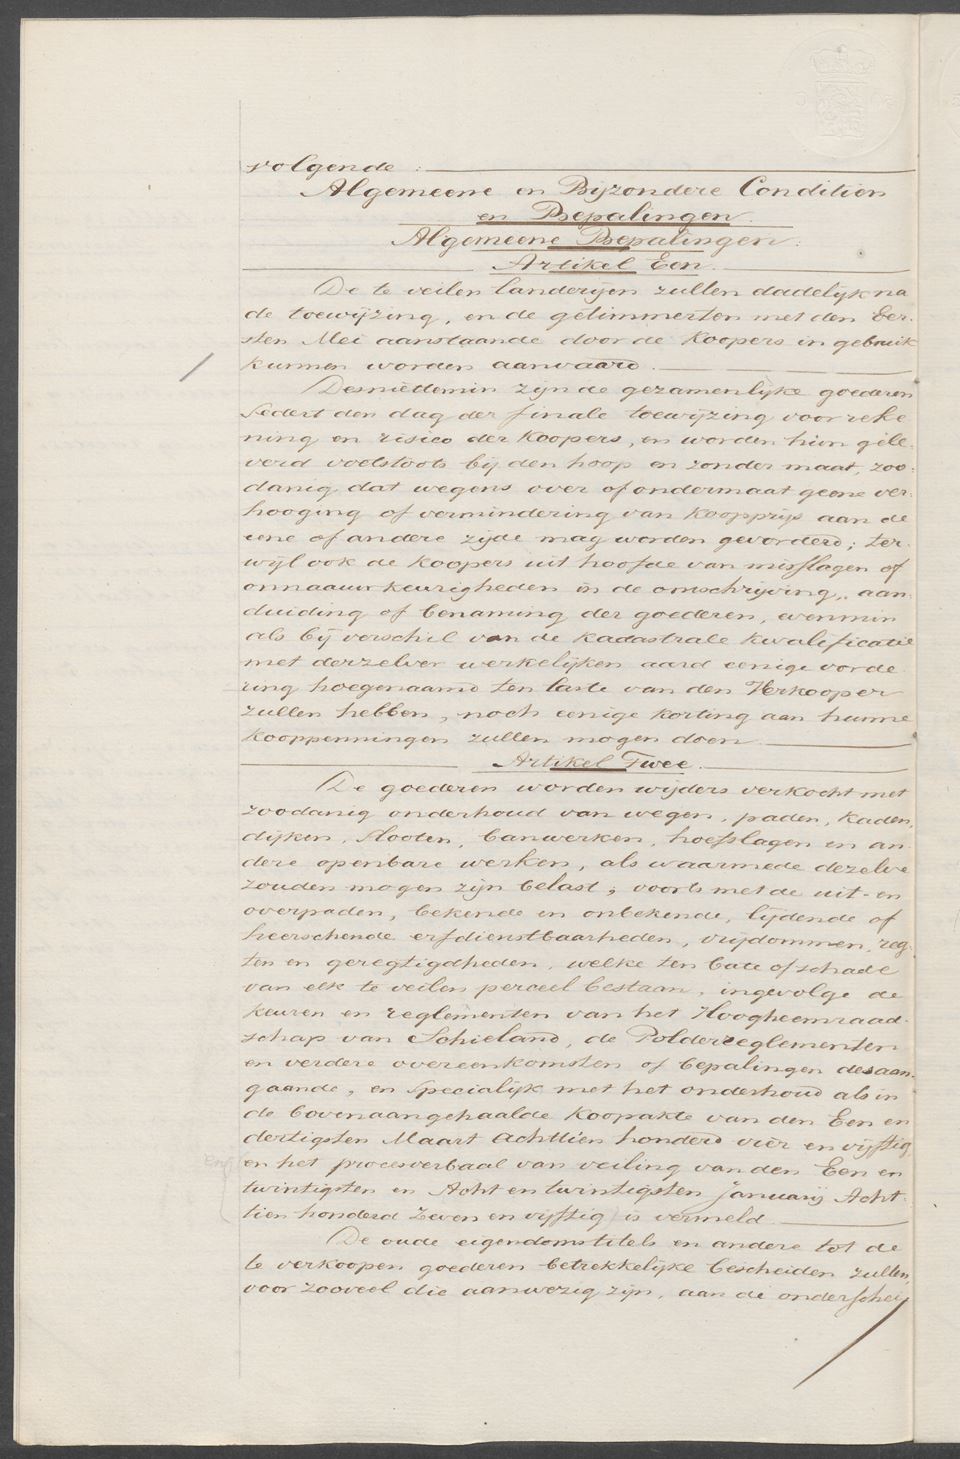 volgende :
Algemeene en Bijzondere Conditien
en Bepalingen.
Algemeene Bepalingen.
Artikel Een.
De te veilen landerijen zullen dadelijk na
de toewijzing, en de getimmerten met den Eer-
sten Mei aanstaande door de Koopers in gebruik
kunnen worden aanvaard.
Desniettemin zijn de gezamenlijke goederen
sedert den dag der finale toewijzing voor reke
ning en risico der Koopers, en worden hun gele-
verd voetstoots bij den hoop en zonder maat, zoo-
danig dat wegens over of ondermaat geene ver-
hooging of vermindering van Koopprijs aan de
eene of andere zijde mag worden gevorderd; ter-
wijl ook de Koopers uit hoofde van misslagen of
onnaauwkeurigheden in de omschrijving, aan-
duiding of benaming der goederen, evenmin
als bij verschil van de kadastrale kwalificatie
met derzelver werkelijken aard eenige vorde
ring hoegenaamd ten laste van den Verkooper
zullen hebben, noch eenige korting aan hunne
Kooppenningen zullen mogen doen.
Artikel Twee.
De goederen worden wijders verkocht met
zoodanig onderhoud van wegen, paden, Kaden,
dijken, slooten, banwerken, hoefslagen en an-
dere openbare werken, als waarmede dezelve
zouden mogen zijn belast; voorts met de uit- en
overpaden, bekende en onbekende, lijdende of
heerschende erfdienstbaarheden, vrijdommen, reg-
ten en geregtigdheden, welke ten bate of schade
van elk te veilen perceel bestaan, ingevolge de
keuren en reglementen van het Hoogheemraad-
schap van Schieland, de Polderreglementen
en verdere overeenkomsten of bepalingen desaan-
gaande, en specialijk met het onderhoud als in
de bovenaangehaalde Koopakte van den Een en
dertigsten Maart Achttien honderd vier en vijftig,
en het procesverbaal van veiling van den Een en
twintigsten en Acht en twintigsten Januarij Acht-
tien honderd zeven en vijftig is vermeld.
De oude eigendomstitels en andere tot de
te verkoopen goederen betrekkelijke bescheiden zullen,
voor zooveel die aanwezig zijn, aan de onderschei